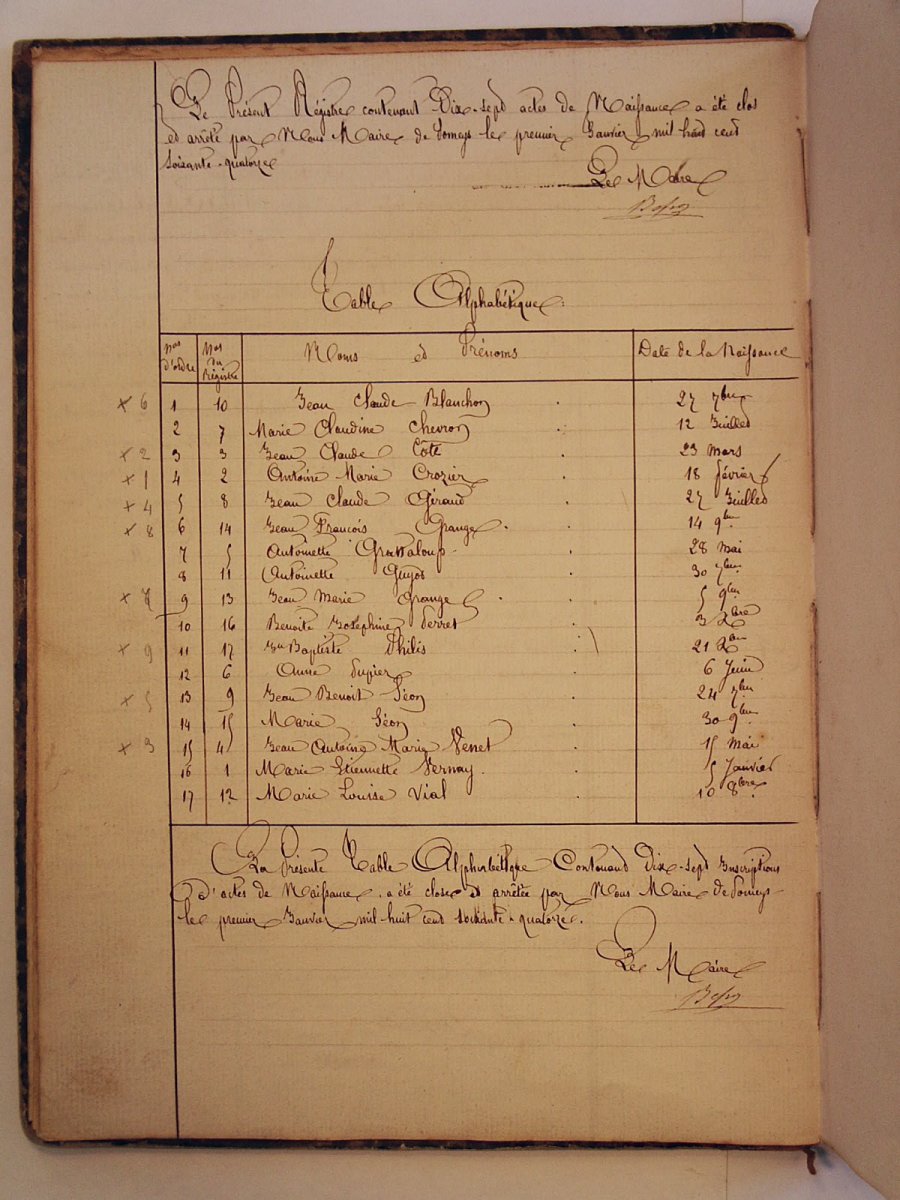 Le Présent Régistre contenant Dix-sept actes de Naissance a été clos
et arrêté par Nous Maire de Pomeys le premier Janvier mil huit cent
soixante-quatorze
Le Maire
Table Alphabétique
Nos d'ordre Nos du Régistre Noms et Prénoms Date de la Naissance
x 6 1 10 Jean Claude Blanchon 27 7bre
2 7 Marie Claudine Chevron 12 Juillet
x 2 3 3 Jean Claude Côte 23 mars
x 1 4 2 Antoine Marie Crozier 18 février
x 4 5 8 Jean Claude Géraud 27 Juillet
x 8 6 14 Jean François Grange 14 9bre
7 5 Antoinette Grattaloup 28 mai
8 11 Antoinette Guyot 30 7bre
x 7 9 13 Jean Marie Grange 5 9bre
10 16 Benoite Joséphine Perret 3 Xbre
x 9 11 17 Jn Baptiste Philis 21 Xbre
12 6 Anne Pupier 6 Juin
x 5 13 9 Jean Benoit Séon 24 7bre
14 15 Marie Séon 30 9bre
x 3 15 4 Jean Antoine Marie Venet 15 mai
16 1 Marie Etiennette Vernay 5 Janvier
17 12 Marie Louise Vial 10 8bre
La Présente Table Alphabétique Contenant Dix-sept Inscriptions
d'actes de Naissance, a été close et arrêtée par Nous Maire de Pomeys
le premier Janvier mil huit cent soixante-quatorze.
Le Maire